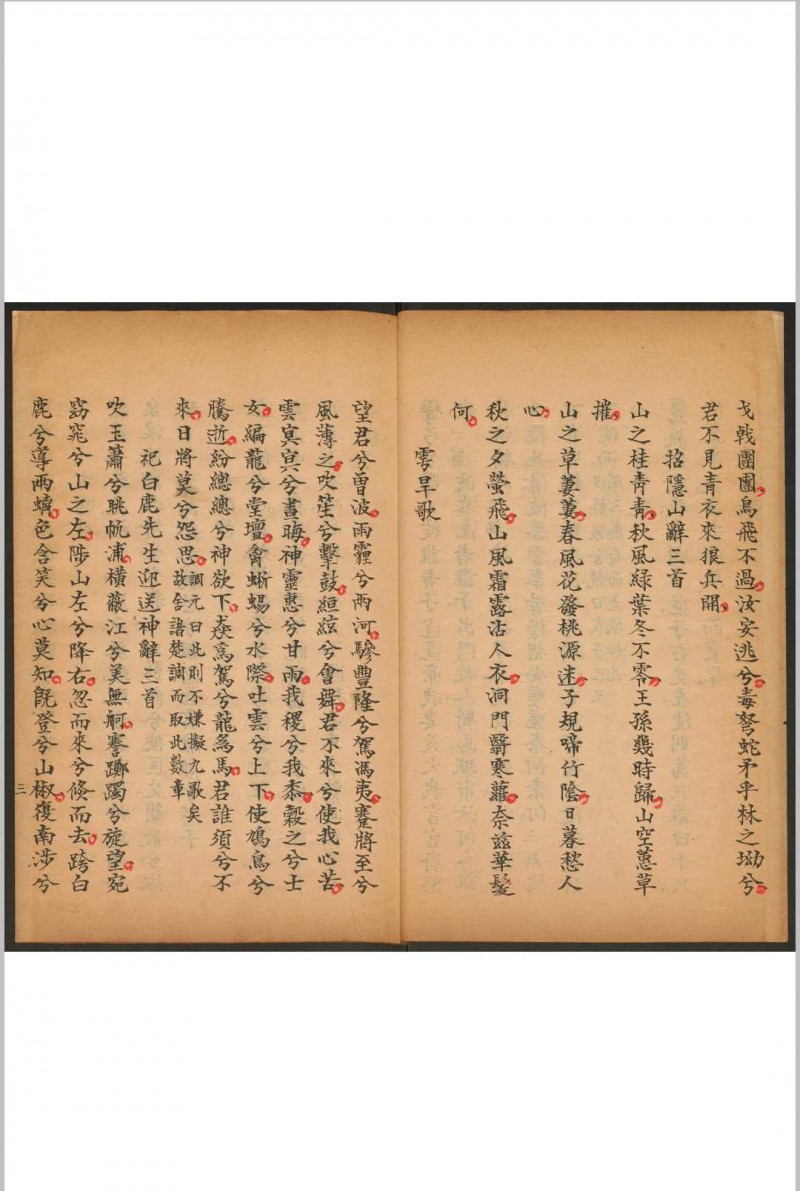 戈戟團團烏飛不過汝安逃兮毒弩蛇矛乎林之坳兮
君不見青衣來狼兵閙
招隱山辭三首
山之桂青青秋風緑葉冬不零王孫幾時歸山空蕙草
摧
山之草萋萋春風花發桃源迷子規啼竹陰日暮愁人
心
秋之夕螢飛山風霜露沾人衣洞門翳寒蘿奈兹華髪
何
雩旱歌
望君兮曽波雨霾兮雨河驂豊隆兮駕馮夷蹇將至兮
風薄之吹笙兮擊鼓絙絃兮會舞君不來兮使我心苦
雲㝠㝠兮晝晦神靈惠兮甘雨我稷兮我黍穀之兮士
女編龍兮堂壇禽蜥蜴兮水際吐雲兮上下使鳩鳥兮
騰逝紛總總兮神欲下猋爲駕兮龍爲馬君誰須兮不
來日將莫兮怨思調元曰此則不嫌擬九歌矣
故舍諸楚調而取此數章
祀白鹿先生迎送神辭三首
吹玉簫兮眺帆浦橫薇江兮美無舸謇躑躅兮旋望宛
窈窕兮山之左陟山左兮降右忽而來兮倏而去跨白
鹿兮導兩蠙色含笑兮心莫知旣登兮山椒復南涉兮
三